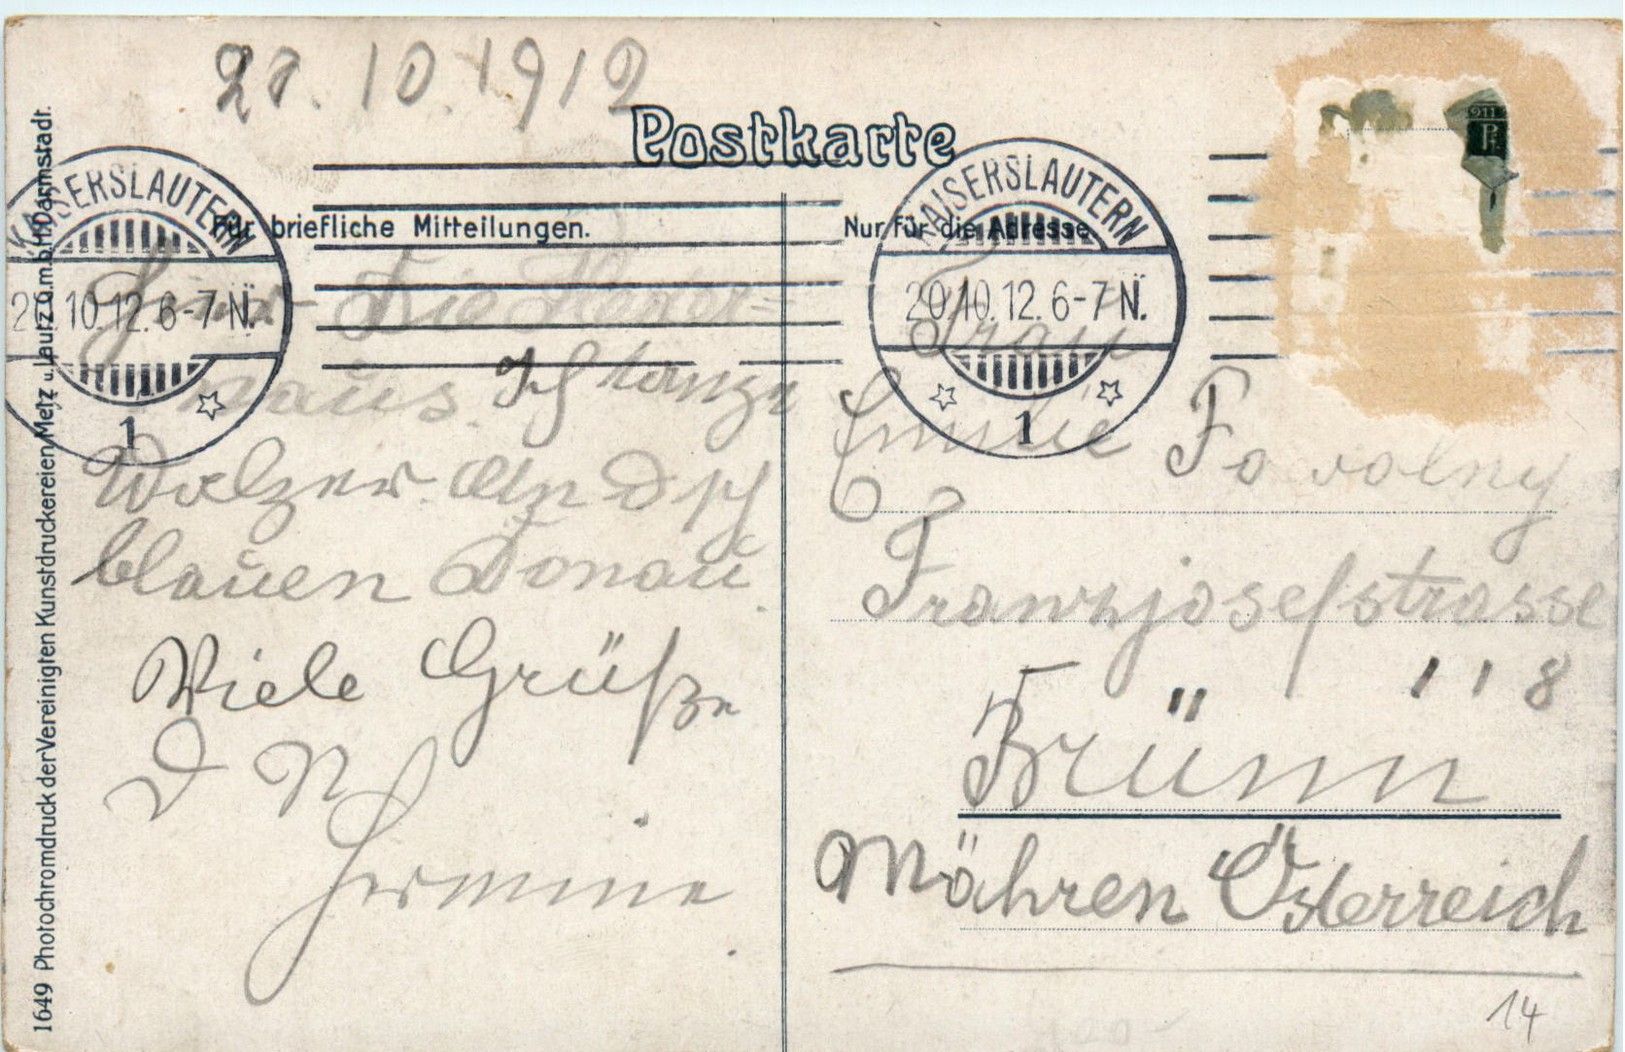 10.1912
Postkarte
Für briefliche Mitteilungen.
Nur für die Adresse
KAISERSLAUTERN
20.10.12.6-7 N.
1
KAISERSLAUTERN
20.10.12.6-7 N.
1
Die
Ich tanze
Walzer. An d
blauen Donau.
Viele Grüße
D N
Hermine
Frau
Emilie
Franzjosefstrasse
118
Brünn
Mähren Österreich
14
1649 Photochromdruck der Vereinigten Kunstdruckereien Metz u. Lautz G.m.b.H. Darmstadt.